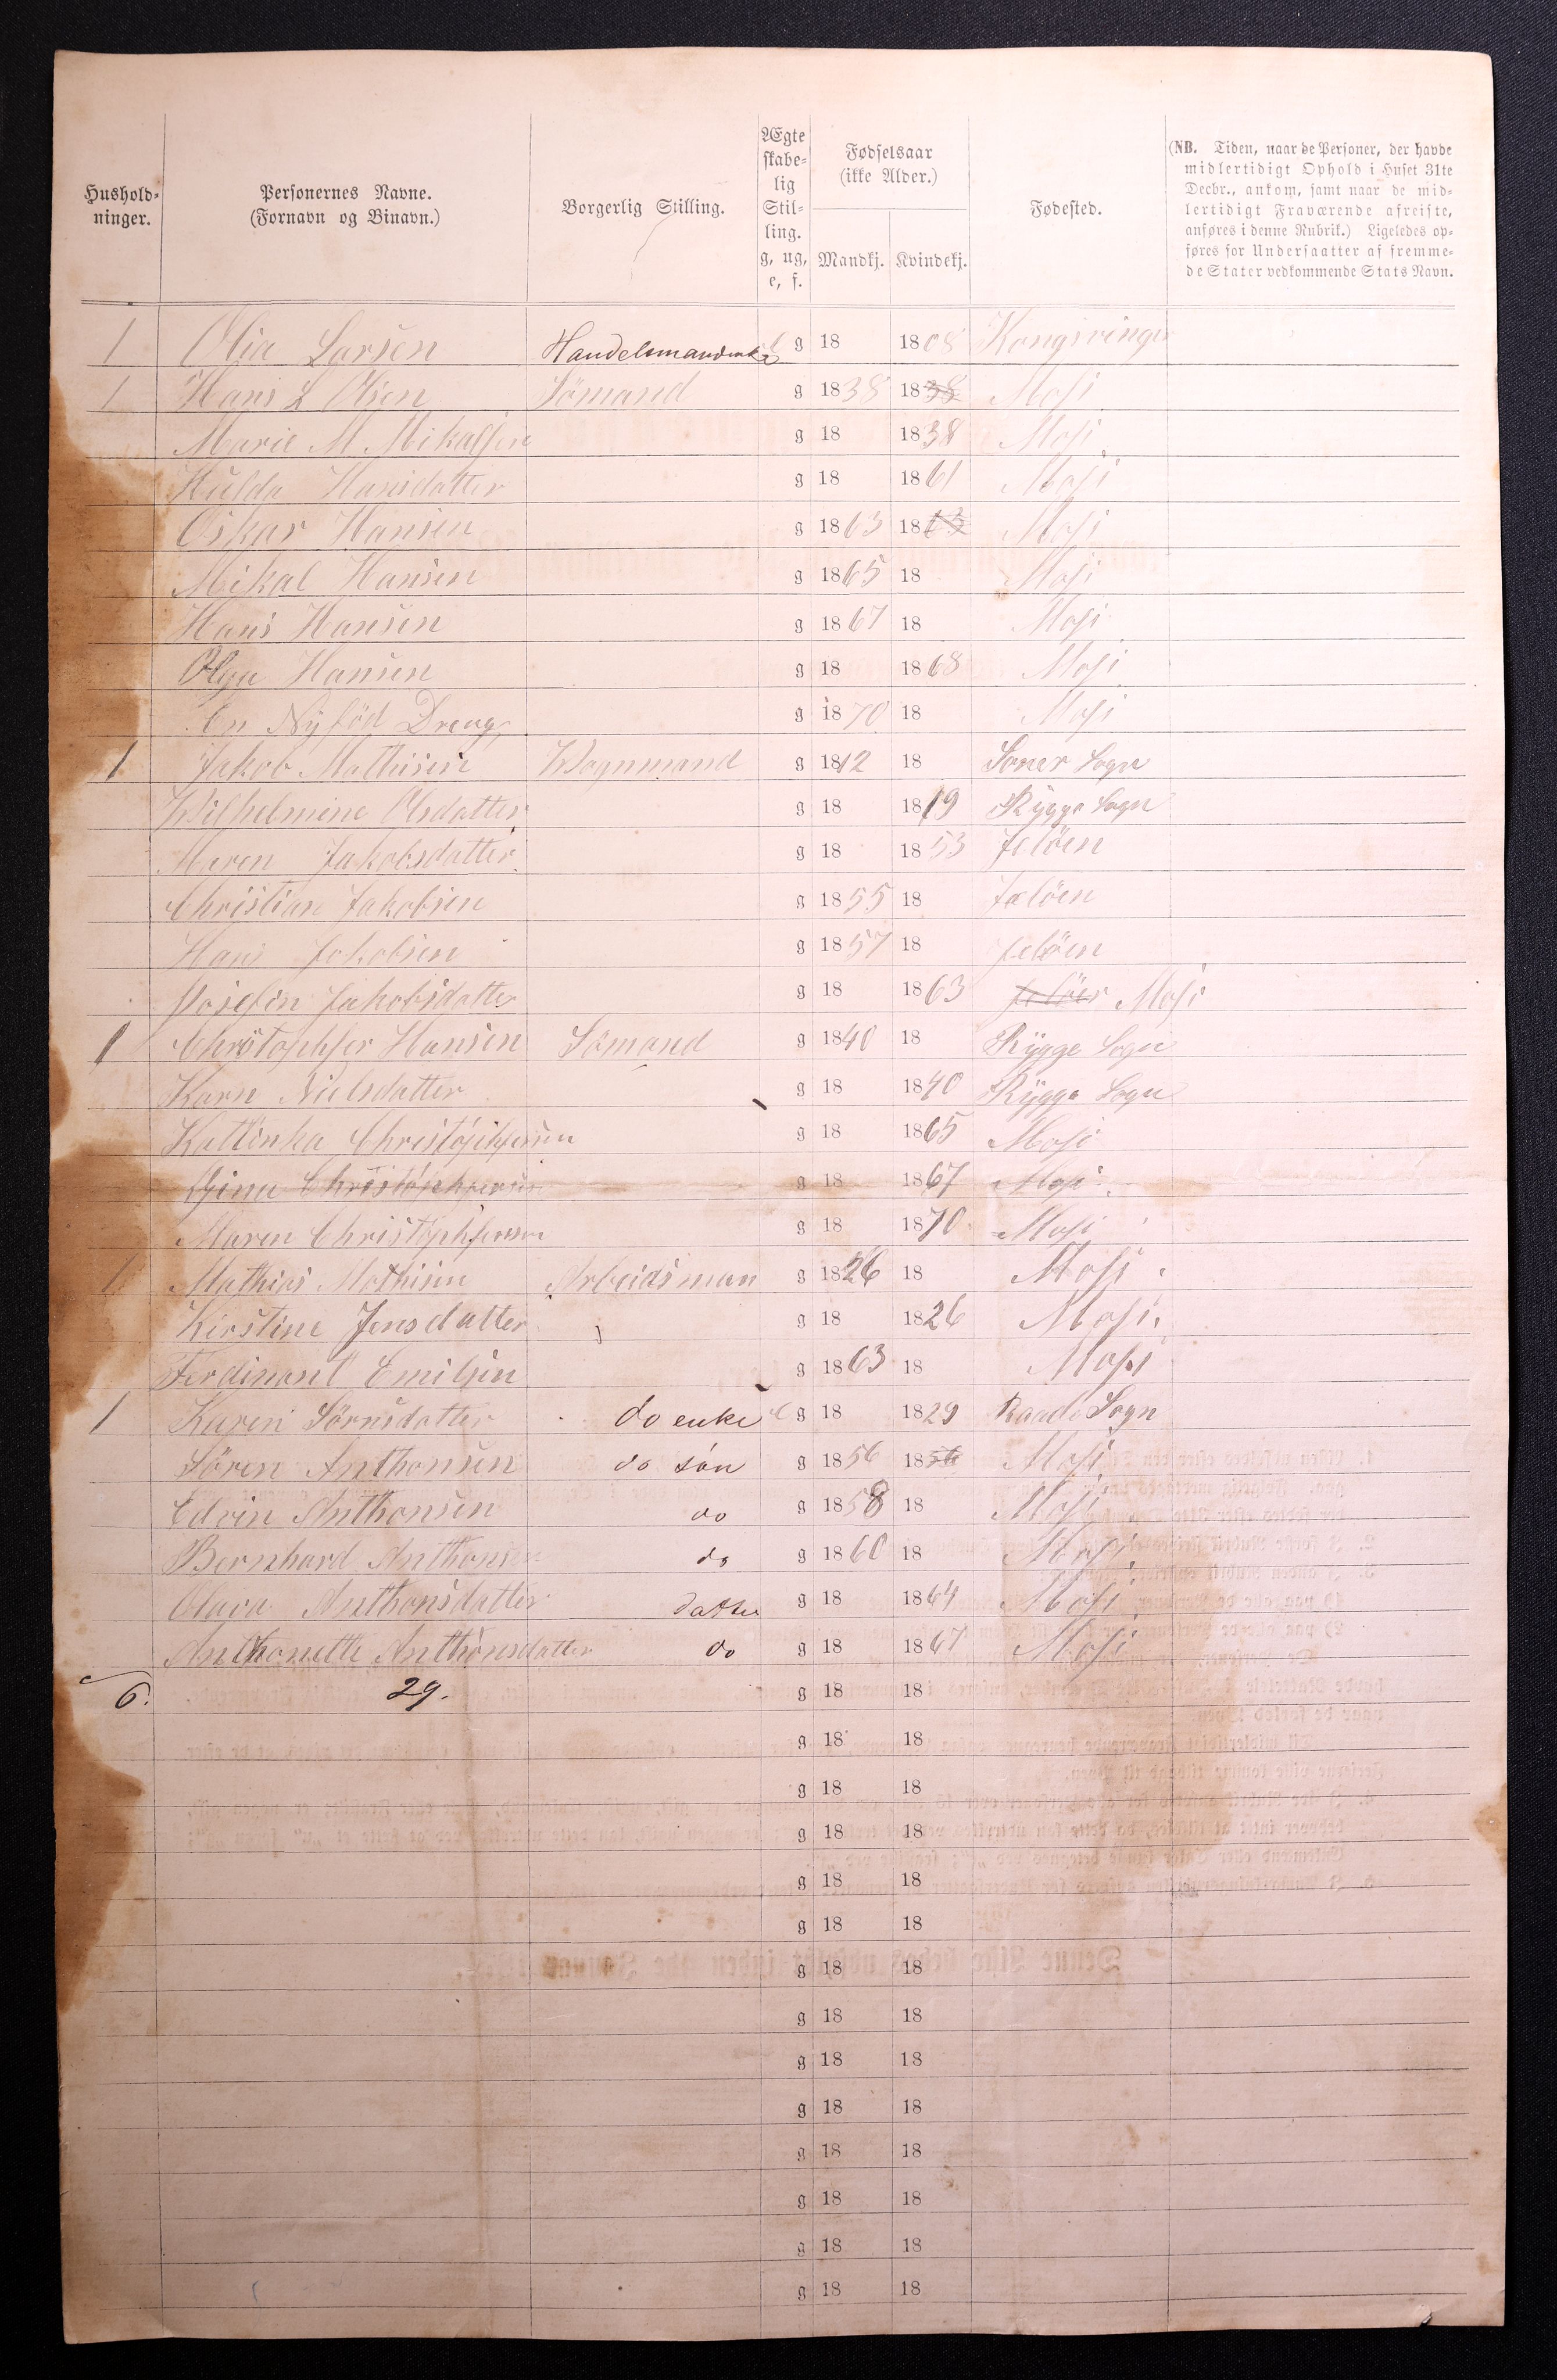 Hushold-
ninger.
Personernes Navne.
(Fornavn og Binavn.)
Borgerlig Stilling.
Ægte
skabe-
lig
Stil-
ling.
g, ug,
e, f.
Fødselsaar
(ikke Alder.)
Mandkj. Kvindekj.
Fødested.
(NB. Tiden, naar de Personer, der havde
midlertidigt Ophold i Huset 31te
Decbr., ankom, samt naar de mid-
lertidigt Fraværende afreiste,
anføres i denne Rubrik.) Ligeledes op-
føres for Undersaatter af fremme-
de Stater vedkommende Stats Navn.
1 Olia Larsen Handelsmandenke e g 18 1808 Kongsvinger
1 Hans L Olsen Sömand g 1838 1838 Mosi
Marie M. Mikalsen g 18 1838 Mosi
Hulda Hansdatter g 18 1861 Mosi
Oskar Hansen g 1863 1863 Mosi
Mikal Hansen g 1865 18 Mosi
Hans Hansen g 1867 18 Mosi
Olga Hansen g 18 1868 Mosi
En Nÿfőd Dreng g 1870 18 Mosi
1 Jakob Mathisen Wognmand g 1812 18 Soner Sogn
Wilhelmine Olsdatter g 18 1819 Rÿgge Sogn
Maren Jakobsdatter g 18 1853 Jelöen
Christian Jakobsen g 1855 18 Jelöen
Hans Jakobsen g 1857 18 Jelöen
Josefin Jakobsdatter g 18 1863 Jelöen Mosi
1 Christophfer Hansen Sömand g 1840 18 Rÿgge Sogn
Karn Nielsdatter g 18 1840 Rÿgge Sogn
Kattinka Christophfersen g 18 1865 Mosi
Gina Christophfersen g 18 1867 Mosi
Maren Christophfersen g 18 1870 Mosi
1 Mathias Mathisen Arbeidsman g 1826 18 Mosi
Kirstine Jensdatter g 18 1826 Mosi.
Ferdinant Emilsen g 1863 18 Mosi
1 Karen Sörnsdatter do enke e g 18 1829 Raade Sogn
Sören Anthonsen do sön g 1856 1856 Mosi
Edvin Anthonsen do g 1858 18 Mosi
Bernhard Anthonsen do g 1860 18 Mosi
Olava Anthonsdatter datter g 18 1864 Mosi
Anthonette Anthonsdatter do g 18 1867 Mosi
6. 29. g 18 18
g 18 18
g 18 18
g 18 18
g 18 18
g 18 18
g 18 18
g 18 18
g 18 18
g 18 18
g 18 18
g 18 18
g 18 18
g 18 18